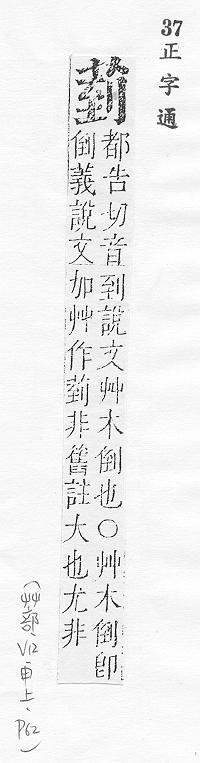 37正字通
菿
都告切音到說文艸木倒也○艸木倒卽
倒義說文加艸作菿非舊註大也尤非
(艸部、V12、申上、P62)